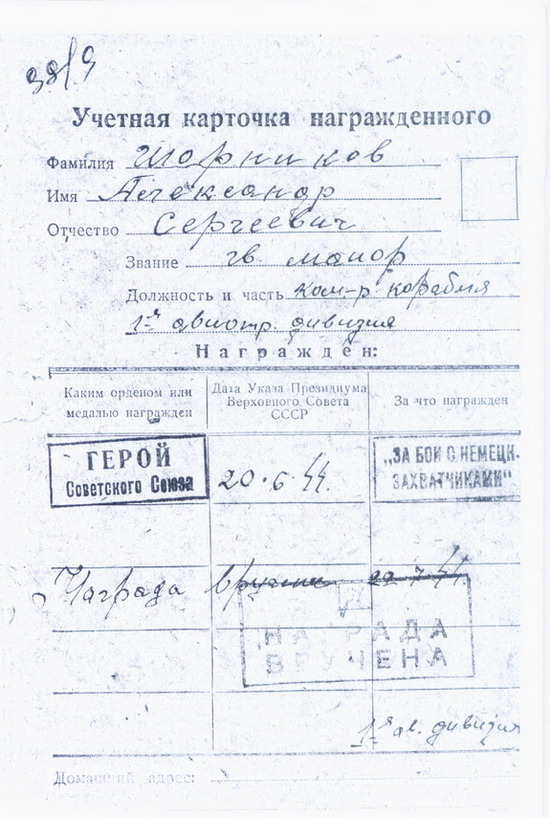 38/9
Учетная карточка награжденного
Фамилия Шорников
Имя Александр
Отчество Сергеевич
Звание гв. майор
Должность и часть ком-р корабля
1-я авиотр. дивизия
Награжден:
Каким орденом или медалью награжден
Дата Указа Президиума Верховного Совета СССР
За что награжден
ГЕРОЙ
Советского Союза
20.6.44.
„ЗА БОИ С НЕМЕЦК.
ЗАХВАТЧИКАМИ"
Награда вручена 22.7.44.
НАГРАДА
ВРУЧЕНА
1-я ав. дивизия
Домашний адрес: